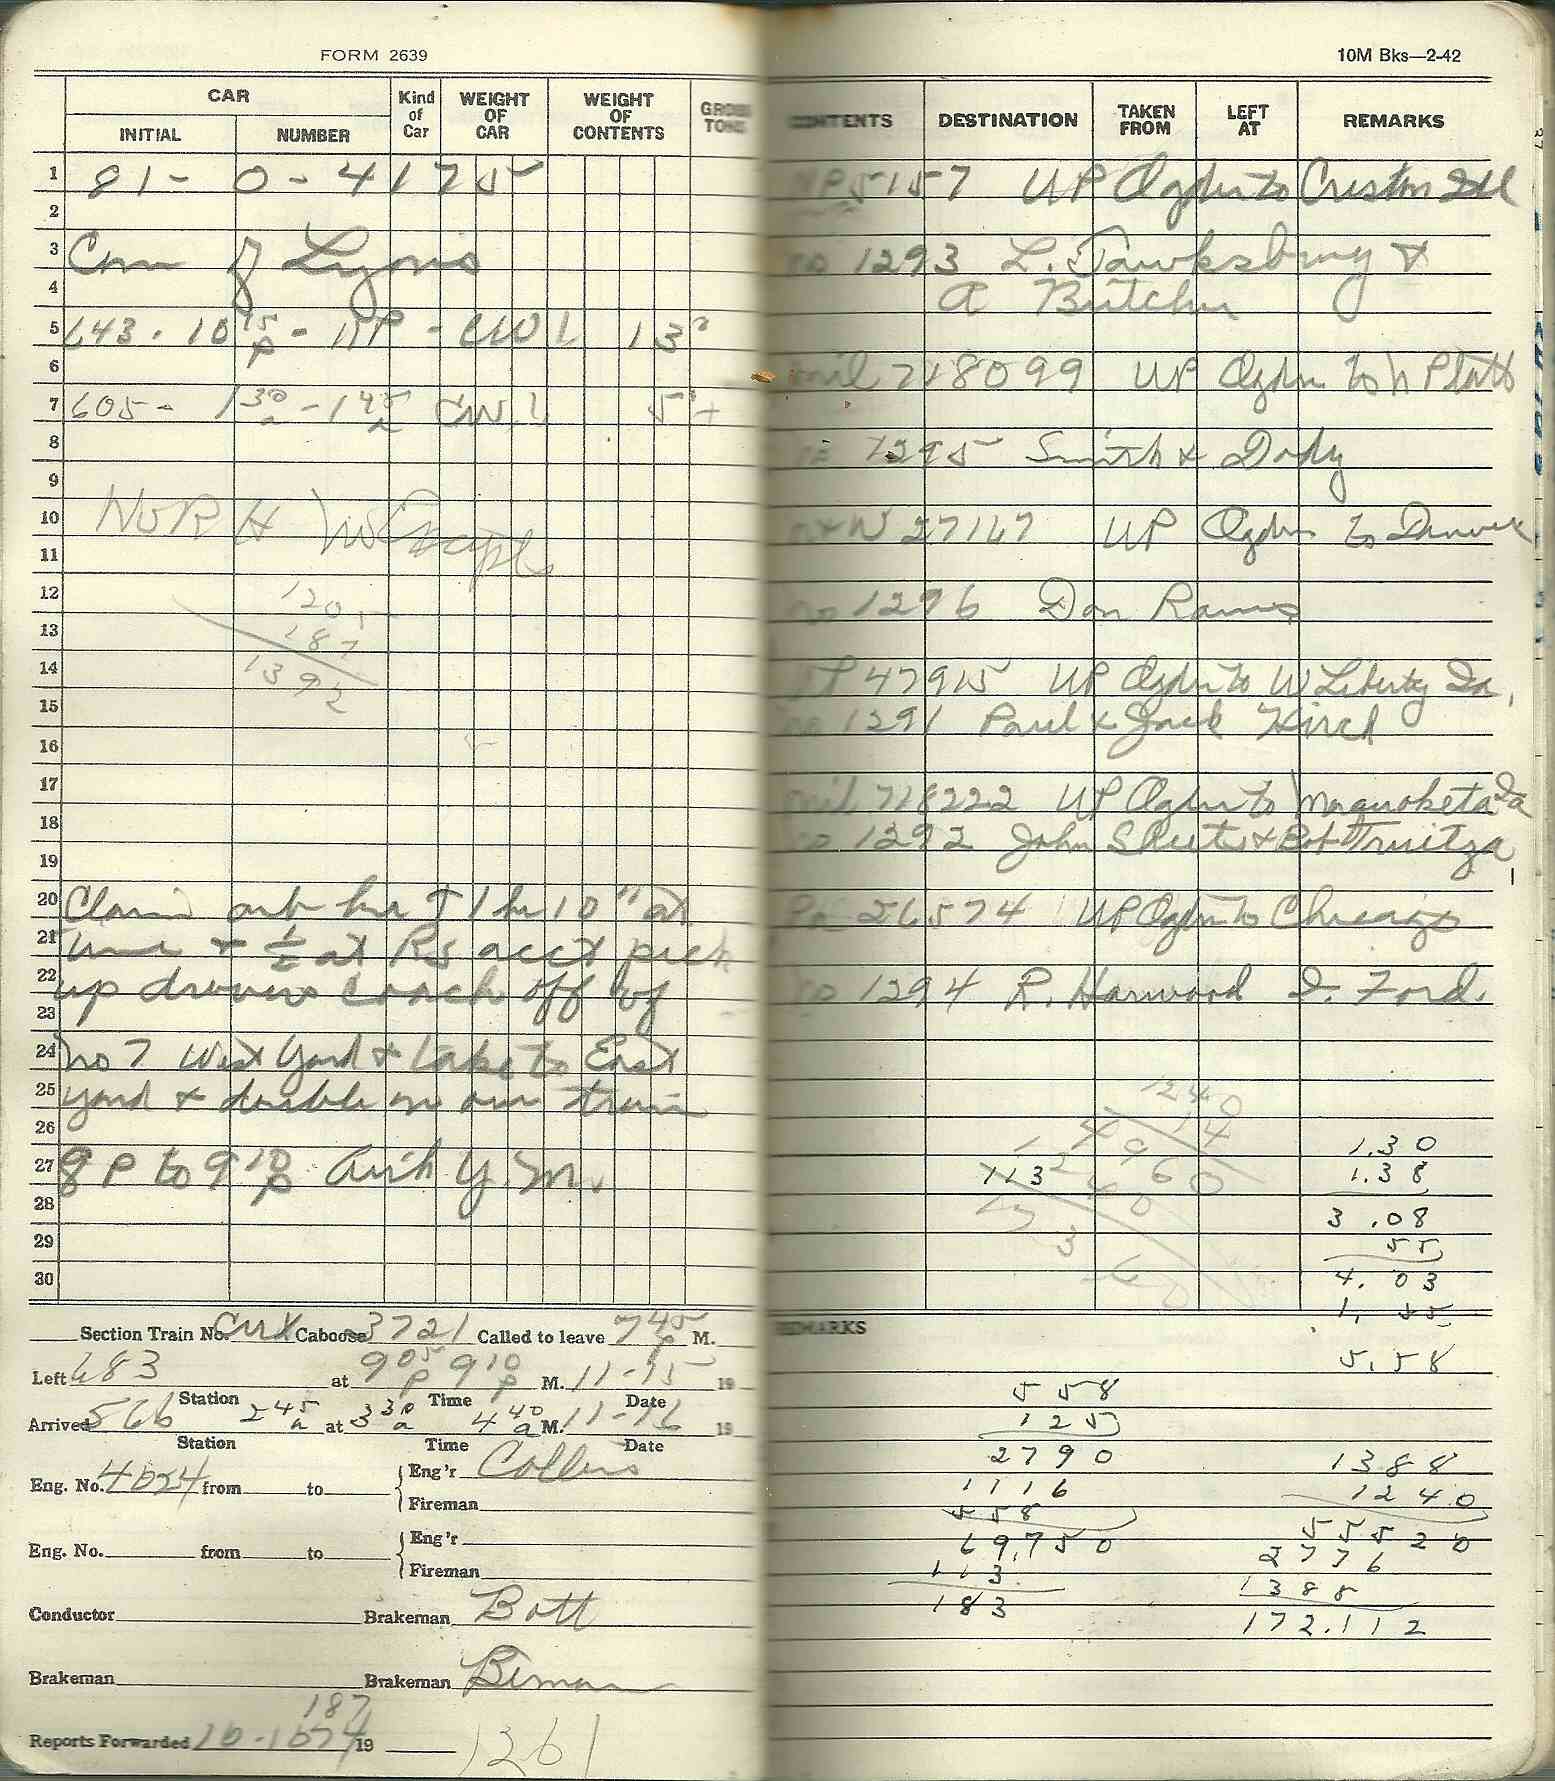 FORM 2639
10M Bks—2-42
CAR
INITIAL NUMBER
Kind of Car
WEIGHT OF CAR
WEIGHT OF CONTENTS
GROSS TONS
CONTENTS
DESTINATION
TAKEN FROM
LEFT AT
REMARKS
1 81 - 0 - 4175
2
3 Con of Lyons
4
5 643 - 10 15 p - - CWL 13
6
7 605 - 1 30 a - 1 45 a CWL 5
8
9
10 NoRH
11
12 1205
13 187
14 1392
15
16
17
18
19
20 Claim arb 1 hr 10" at
21 time & 1/2 at RS acct pick
22 up drovers coach off of
23
24 no 7 West Yard & take to East
25 yard & double on our train
26
27 8 P to 9 10 p Auth Y.M.
28
29
30
5157 UP Ogden to Creston Ill
1293 L. Tawksbury &
A Butcher
mil 718099 UP Ogden to N Platt
1295 Smith & Dody
27167 UP Ogden to Denver
no 1296 Don Ramis
47915 UP Ogden to W Liberty Ia,
no 1291 Paul & Jack Hirch
mil 718222 UP Ogden to Maquoketa Ia
no 1292 John &
26574 UP Ogden to Chicago
no 1294 R. Harwood I. Ford.
1240
14
4960
1240
113
1.30
1.38
3.08
55
4.03
1.55
5.58
Section Train No. Caboose 3721 Called to leave 7 45 p M.
Left 683 at 9 05 p 9 10 p M. 11-15 19
Station Time Date
Arrived 566 2 45 a at 3 30 a 4 40 a M. 11-16 19
Station Time Date
Eng. No. 4024 from to Eng'r Collins
Fireman
Eng. No. from to Eng'r
Fireman
Conductor Brakeman Bott
Brakeman Brakeman Beman
187
Reports Forwarded 19
1261
REMARKS
558
125
2790
1116
558
69.750
113
183
1388
1240
55520
2776
1388
172.112